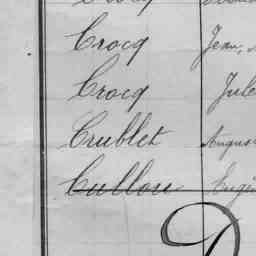 Crocq Jean,
Crocq Jule
Crublet Augus
Cullou Eugèn
D